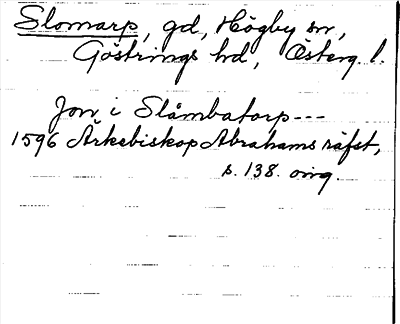 Slomarp, gd, Högby sn,
Göstrings hd, Österg. l.
Jon i Slåmbatorp---
1596 Ärkebiskop Abrahams räfst,
s. 138. orig.